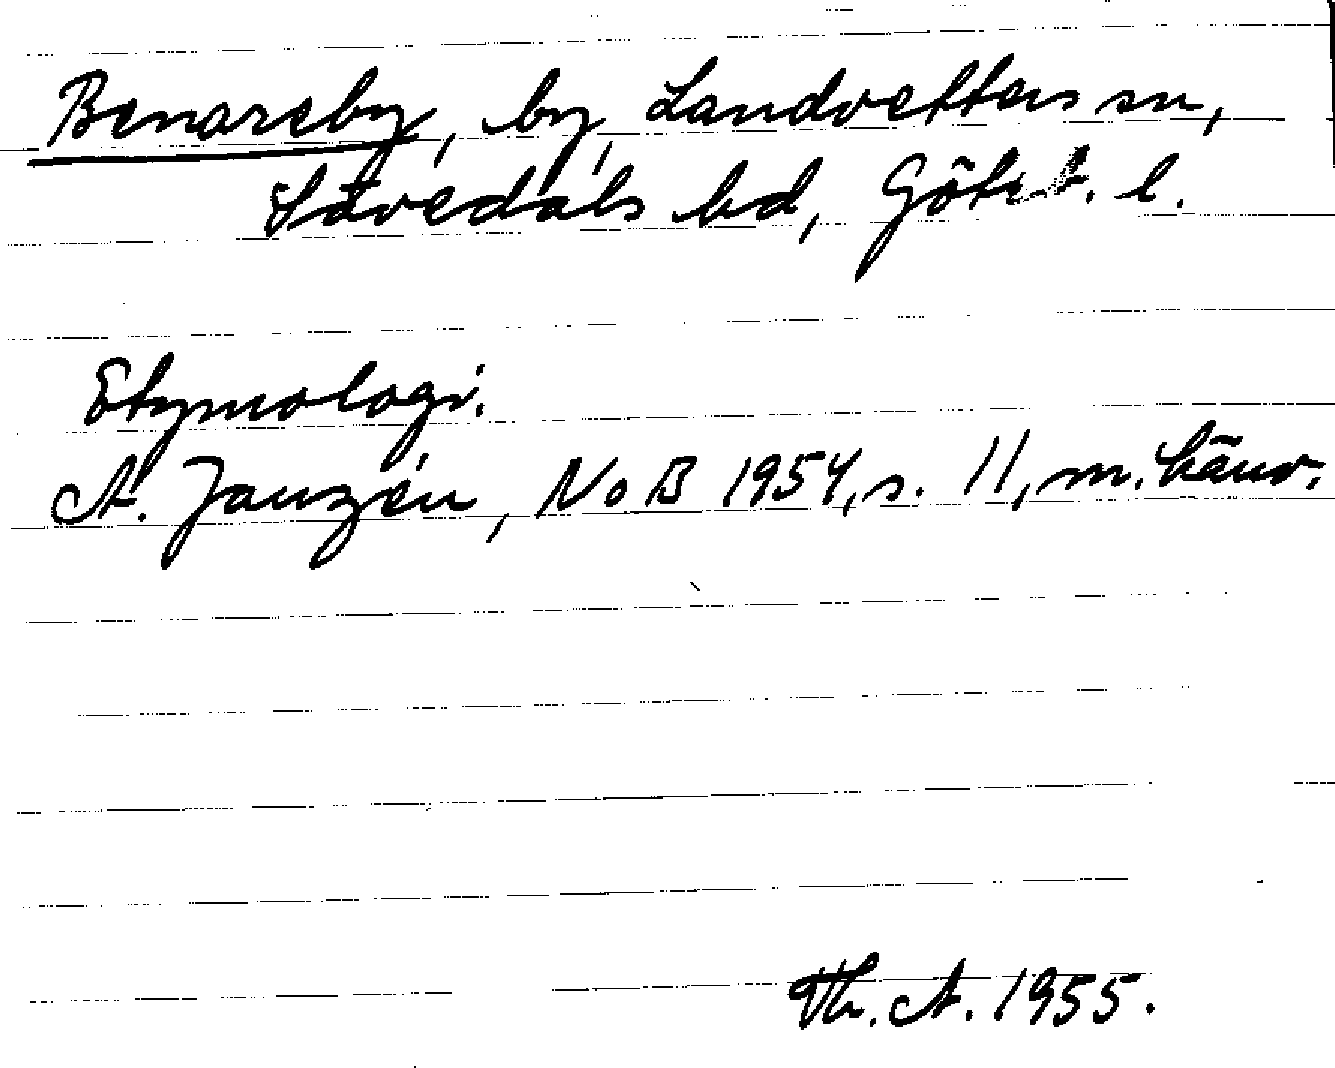 Benareby, by, Landvetters sn,
Sävedals hd, Göteb. l.
Etymologi.
A. Janzén, NoB 1954, s. 11, m. hänv.
Th. A. 1955.